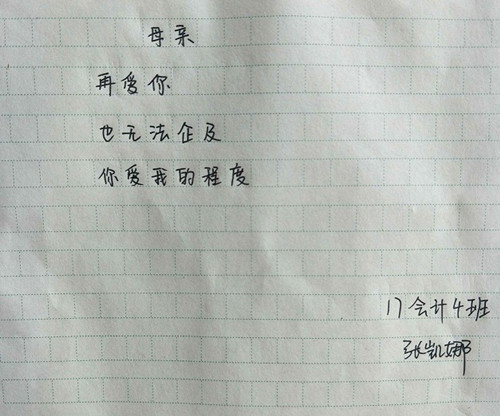 母亲
再爱你
也无法企及
你爱我的程度
17会计4班
张凯娜